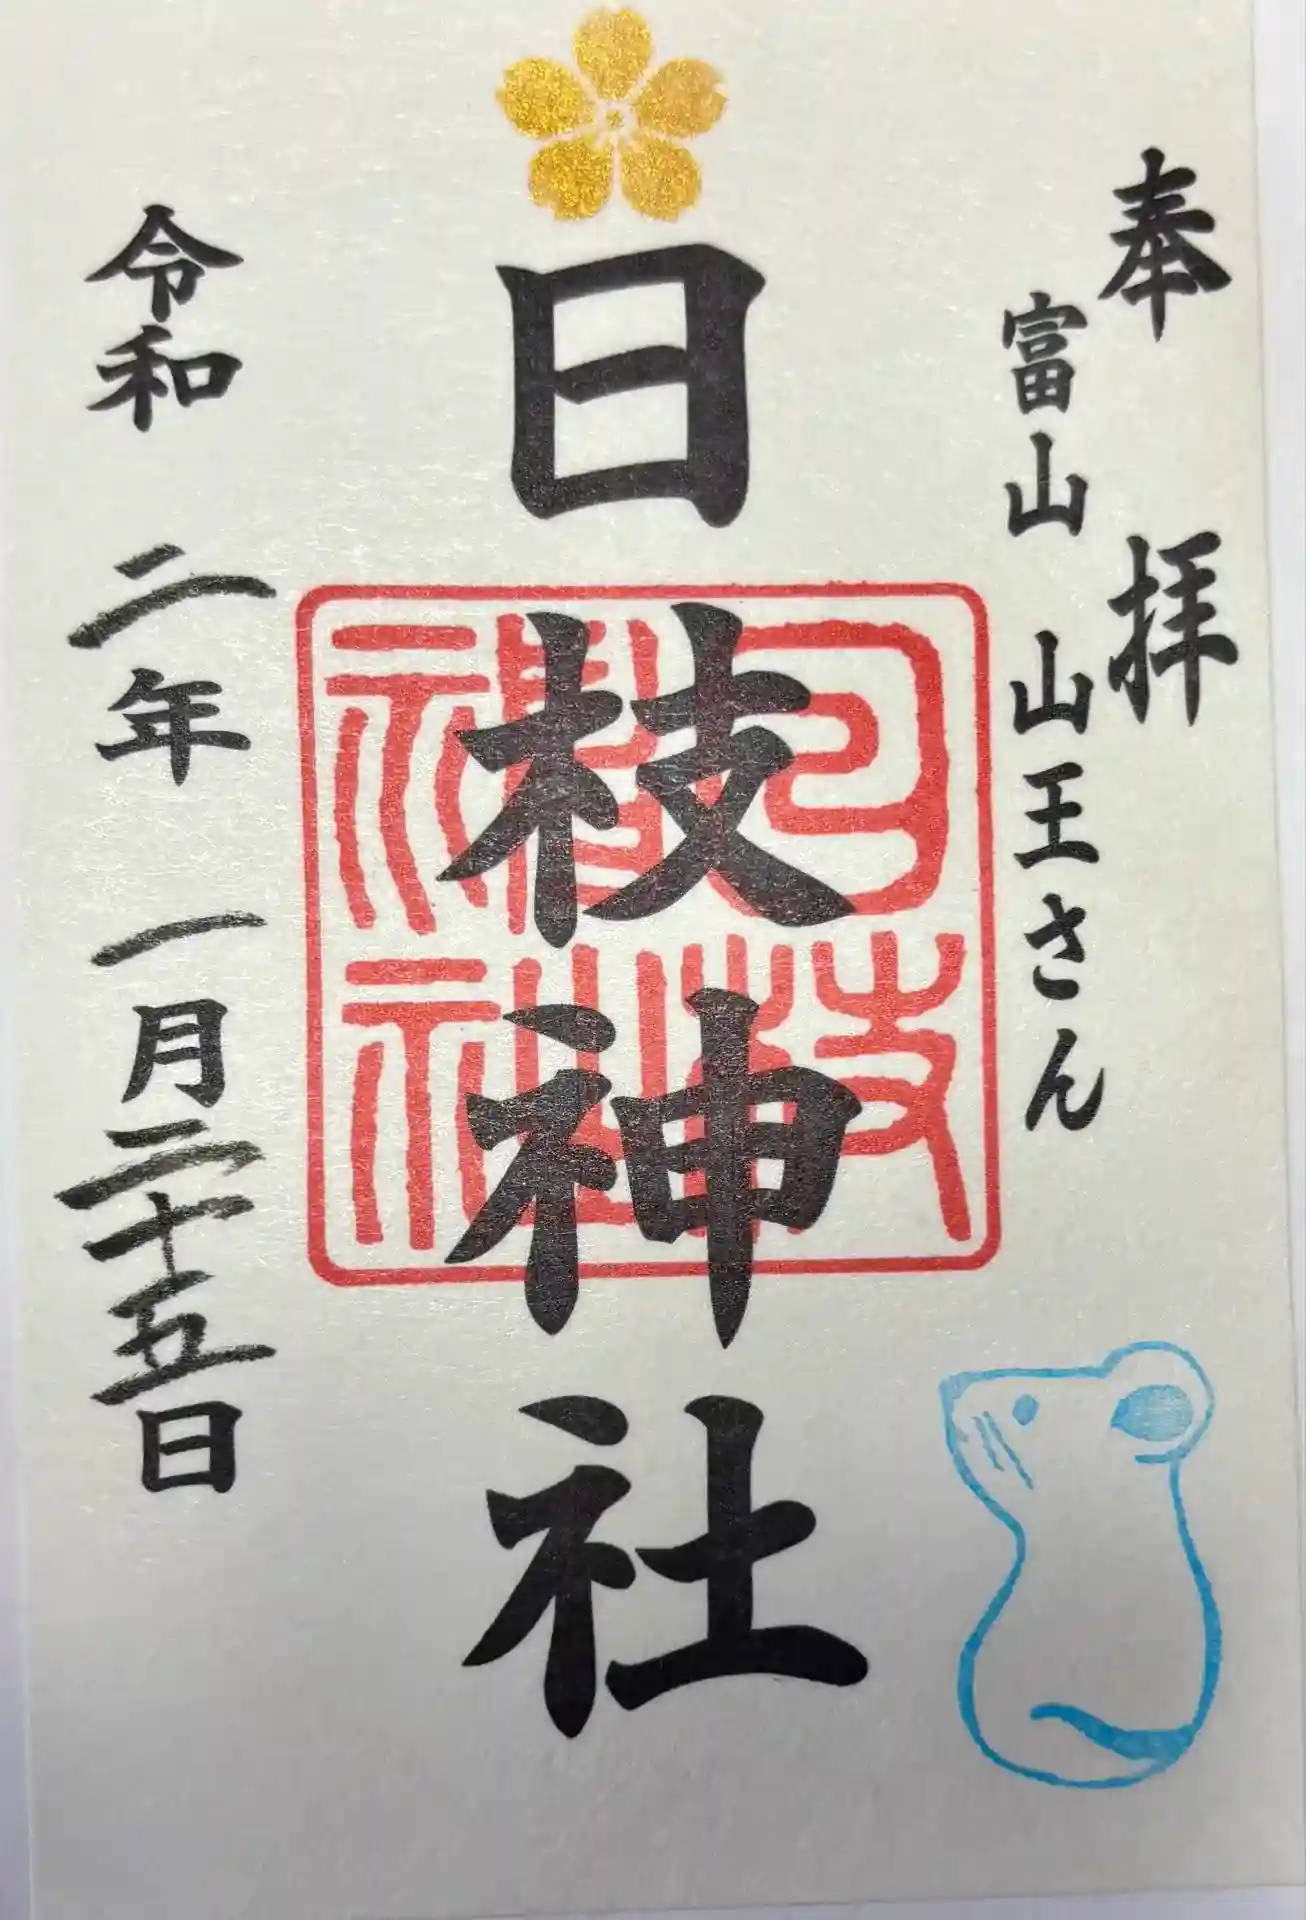 奉拝
富山 山王さん
日枝神社
日枝神社
令和 二年 一月二十五日